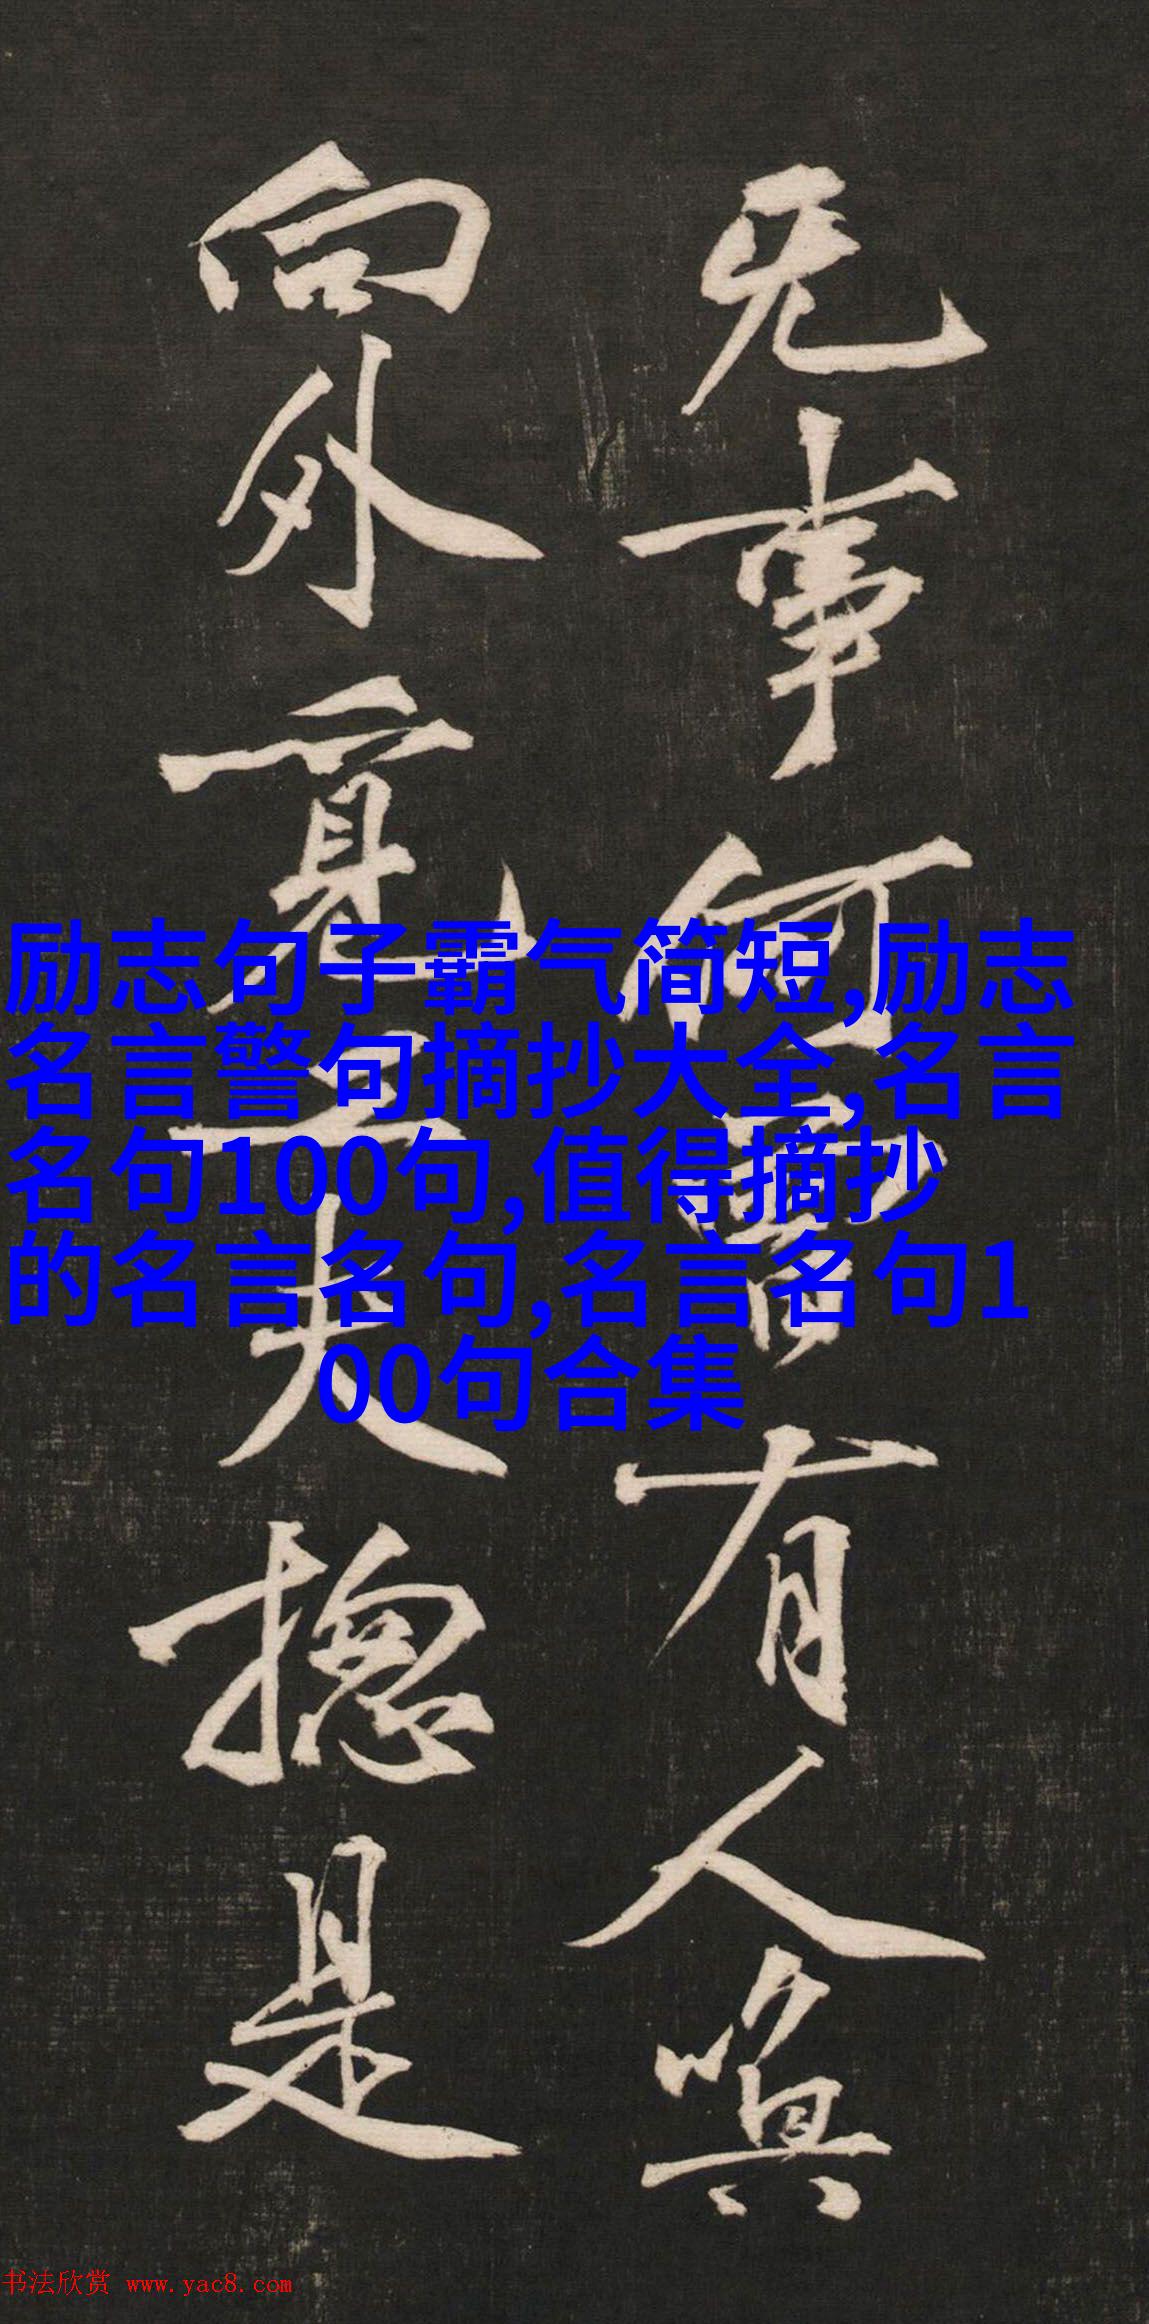 无事何曾有人喚
向外覓工夫揔是
励志句子霸气简短,励志
名言警句摘抄大全,名言
名句100句,值得摘抄
的名言名句,名言名句1
00句合集
书法欣赏 www.yac8.com